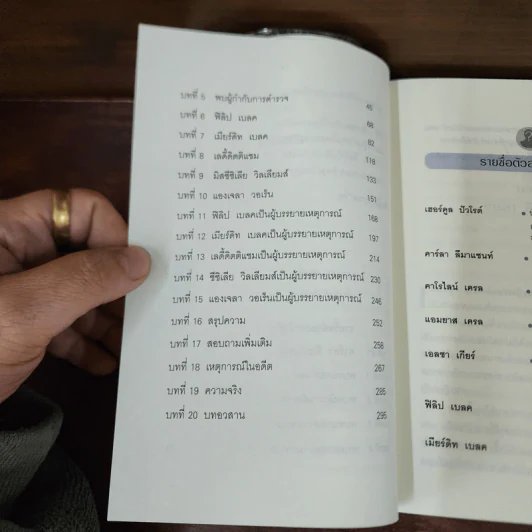 บทที่ 5 พบผู้กำกับการตำรวจ 45
บทที่ 6 ฟิลิป เบลค 68
บทที่ 7 เมียร์ดิท เบลค 82
บทที่ 8 เลดี้ดิตติแชม 118
บทที่ 9 มิสซีซิเลีย วิลเลียมส์ 133
บทที่ 10 แองเจลา วอเร็น 151
บทที่ 11 ฟิลิป เบลคเป็นผู้บรรยายเหตุการณ์ 168
บทที่ 12 เมียร์ดิท เบลคเป็นผู้บรรยายเหตุการณ์ 197
บทที่ 13 เลดี้ดิตติแชมเป็นผู้บรรยายเหตุการณ์ 214
บทที่ 14 ซีซิเลีย วิลเลียมส์เป็นผู้บรรยายเหตุการณ์ 230
บทที่ 15 แองเจลา วอเร็นเป็นผู้บรรยายเหตุการณ์ 246
บทที่ 16 สรุปความ 252
บทที่ 17 สอบถามเพิ่มเติม 258
บทที่ 18 เหตุการณ์ในอดีต 267
บทที่ 19 ความจริง 285
บทที่ 20 บทอวสาน 295
รายชื่อตัว
เฮอร์คูล ปัวโรต์
คาร์ลา ลีมาแชนท์
คาโรไลน์ เครล
แอมยาส เครล
เอลซา เกียร์
ฟิลิป เบลค
เมียร์ดิท เบลค